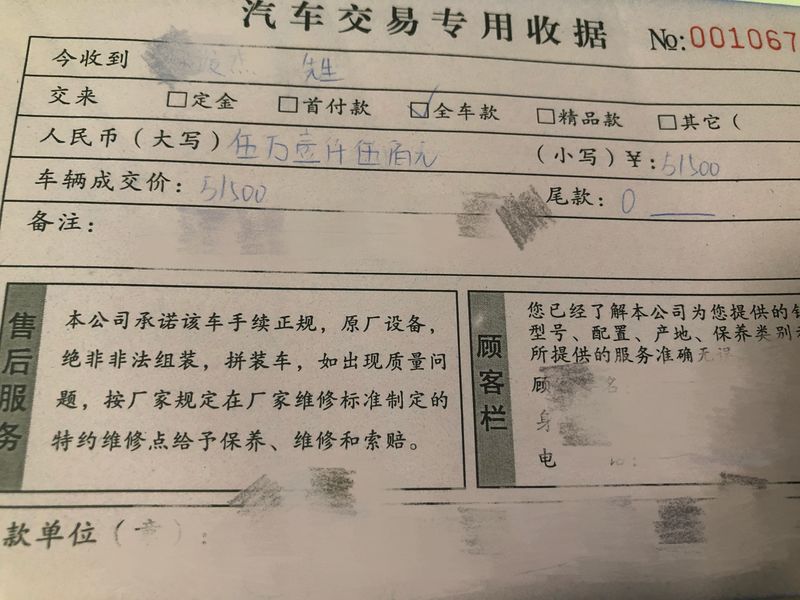 汽车交易专用收据 No:001067
今收到 先生
交来 □定金 □首付款 ☑全车款 □精品款 □其它（
人民币（大写）伍万壹仟伍佰元 （小写）¥:51500
车辆成交价：51500 尾款：0
备注：
售后服务
本公司承诺该车手续正规，原厂设备，
绝非非法组装，拼装车，如出现质量问
题，按厂家规定在厂家维修标准制定的
特约维修点给予保养、维修和索赔。
顾客栏
您已经了解本公司为您提供的
型号、配置、产地、保养类别
所提供的服务准确无误
顾 名
身
电
款单位（章）：